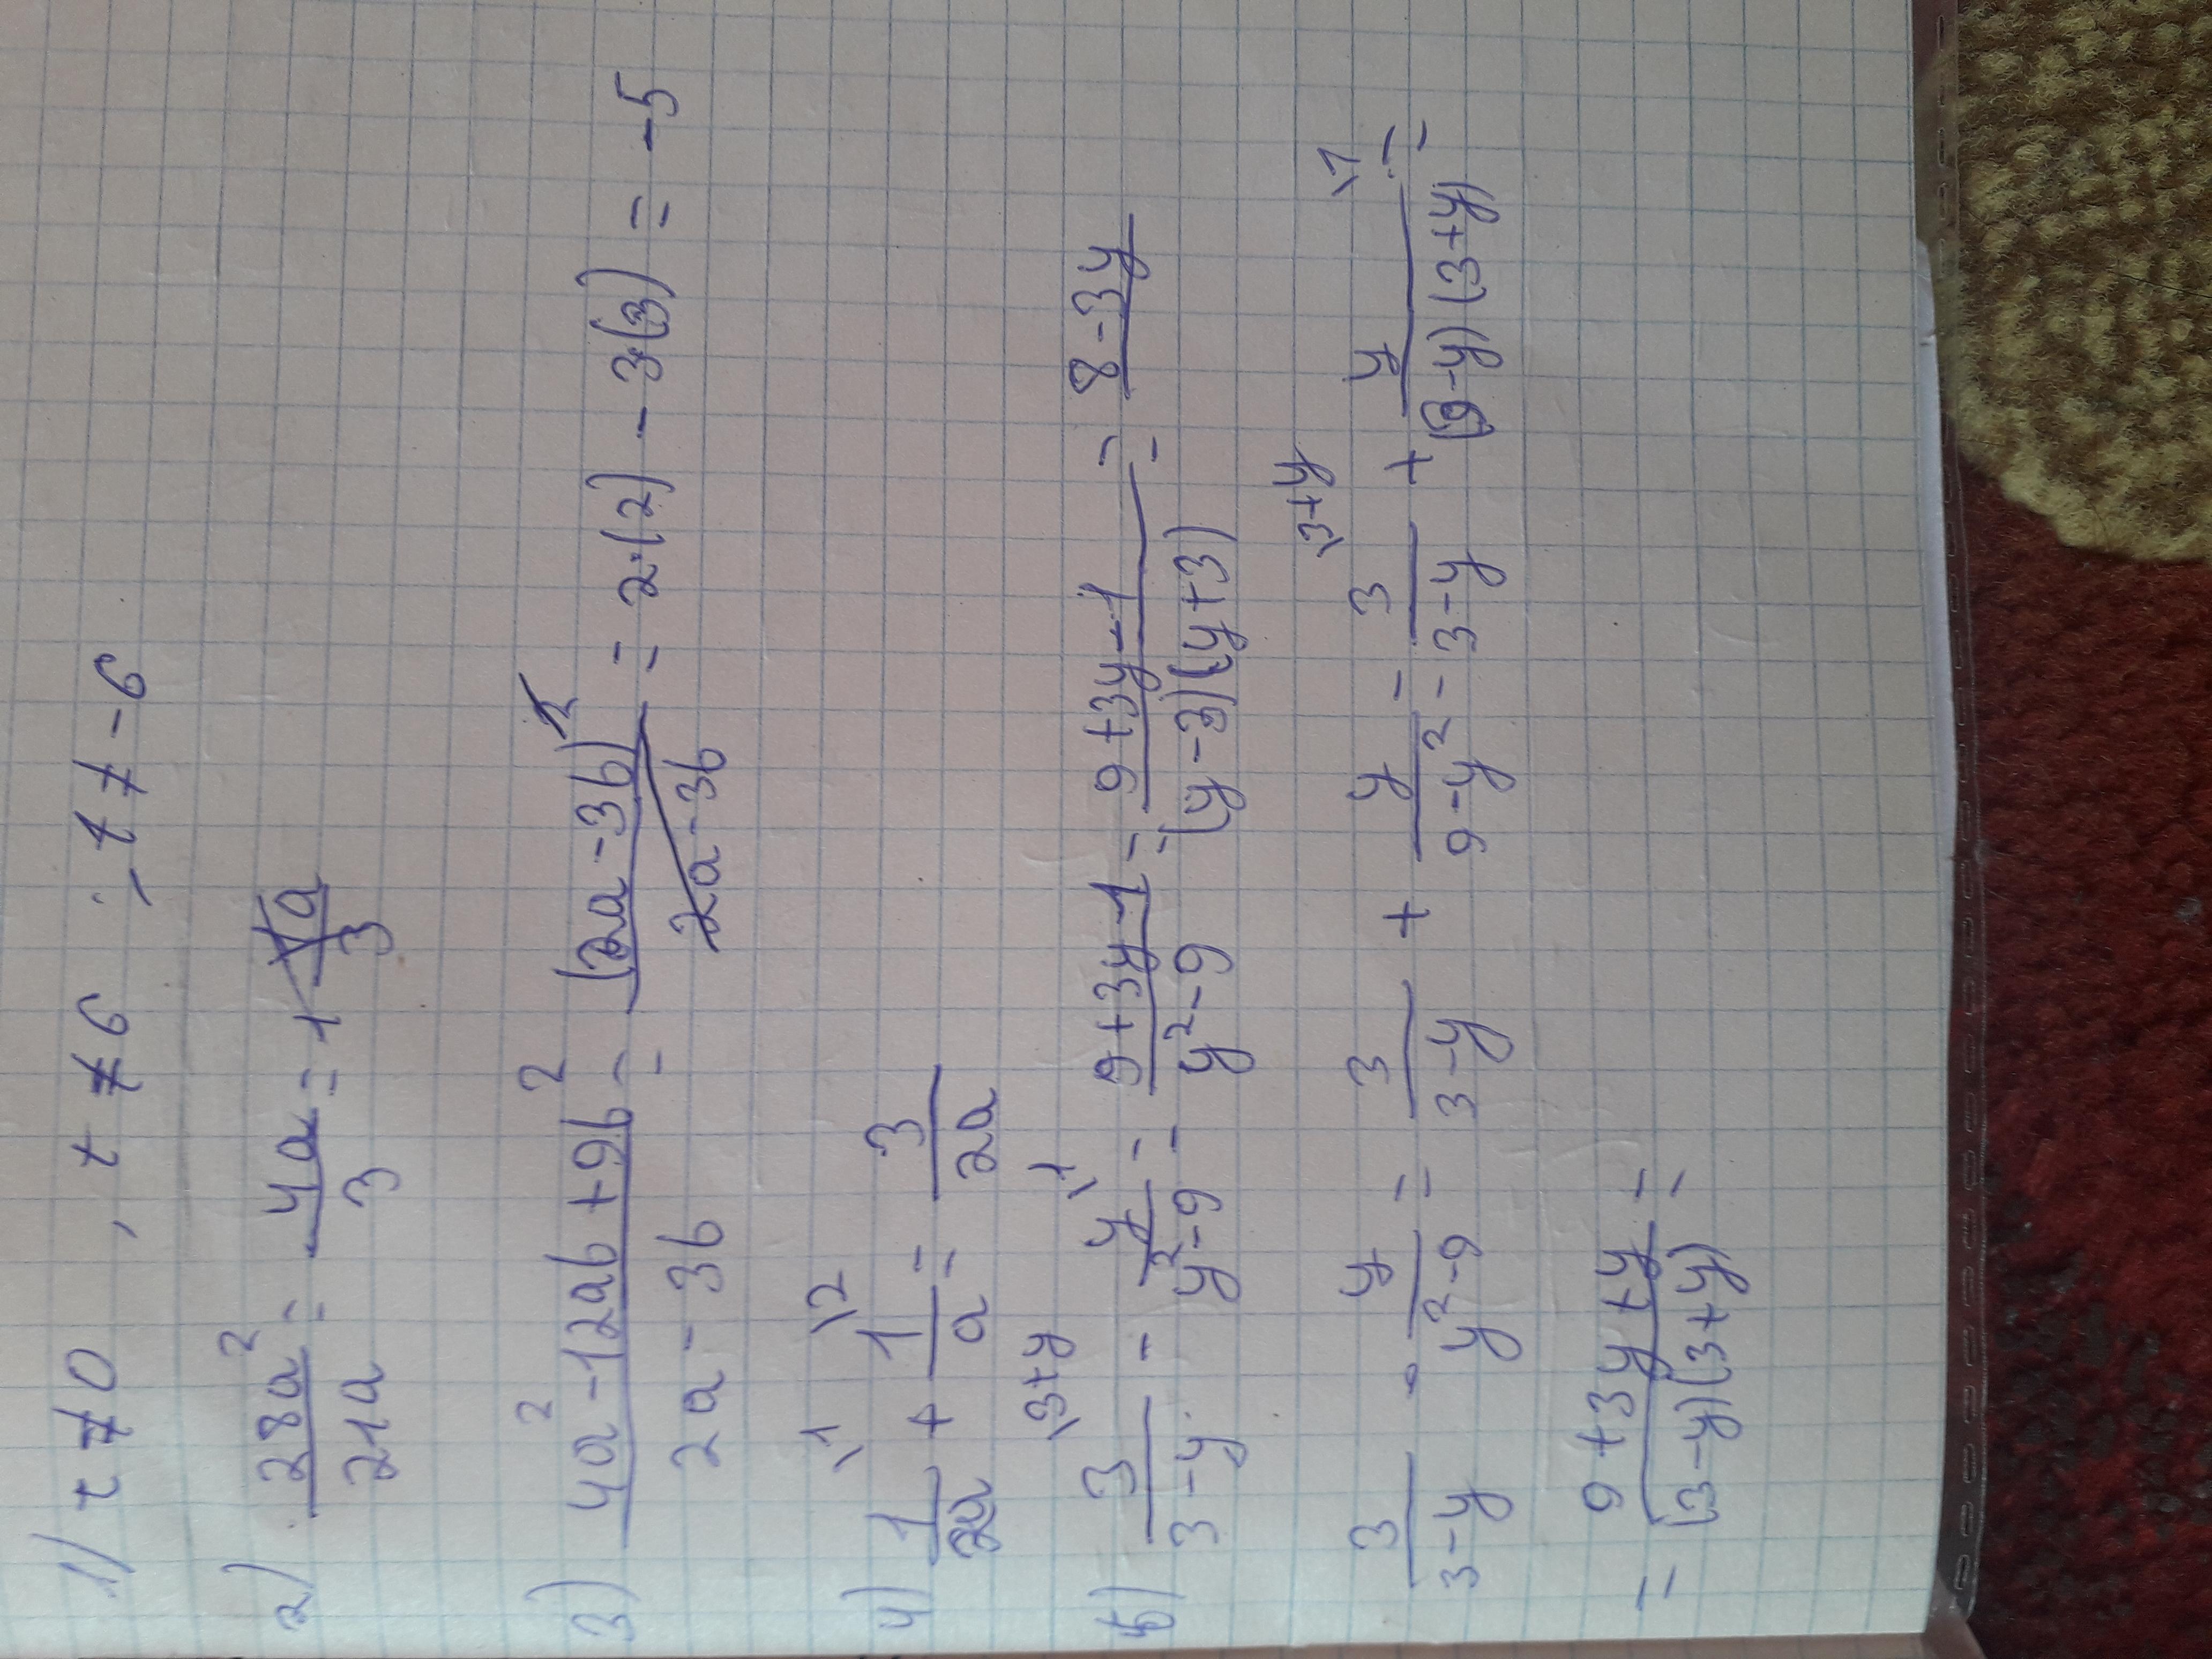 1) t ≠ 0 , t ≠ 6 ; t ≠ -6
2) 28a²/21a = 4a/3 = 1 a/3
3) (4a² - 12ab + 9b²)/(2a - 3b) = (2a - 3b)²/(2a - 3b) = 2·(2) - 3·(3) = -5
4) 1\1/2a + 1\2/a = 3/2a
5) 3\3+y/(3-y) - y\1/(y²-9) = (9+3y-1)/(y²-9) = (9+3y-1)/((y-3)(y+3)) = 8-3y
3/(3-y) - y/(y²-9) = 3/(3-y) + y/(9-y²) = 3\3+y/(3-y) + y\1/((3-y)(3+y)) =
= (9+3y+y)/((3-y)(3+y)) =